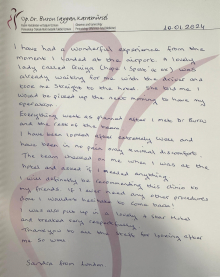 Op. Dr. Burcu
10.01.2024
I have had a wonderful experience from the
moment I landed at the airport. A lovely
lady called
already waiting for me with the driver and
took me straight to the hotel. She told me I
would be picked up the next morning to have my
operation
Everything went as planned after I met Dr Burcu
and the rest of the team
I have been looked after extremely well and
have been in no pain only minimal discomfort.
The team checked on me when I was at the
hotel and asked if I needed anything
I will definitely be recommending this clinic to
my friends. If I ever need any other procedures
done I wouldn't hesitate to come back!
I was also put up in a lovely 4 star Hotel
and treated very
Thank you to all the staff for looking after
me so well
Sandra from London